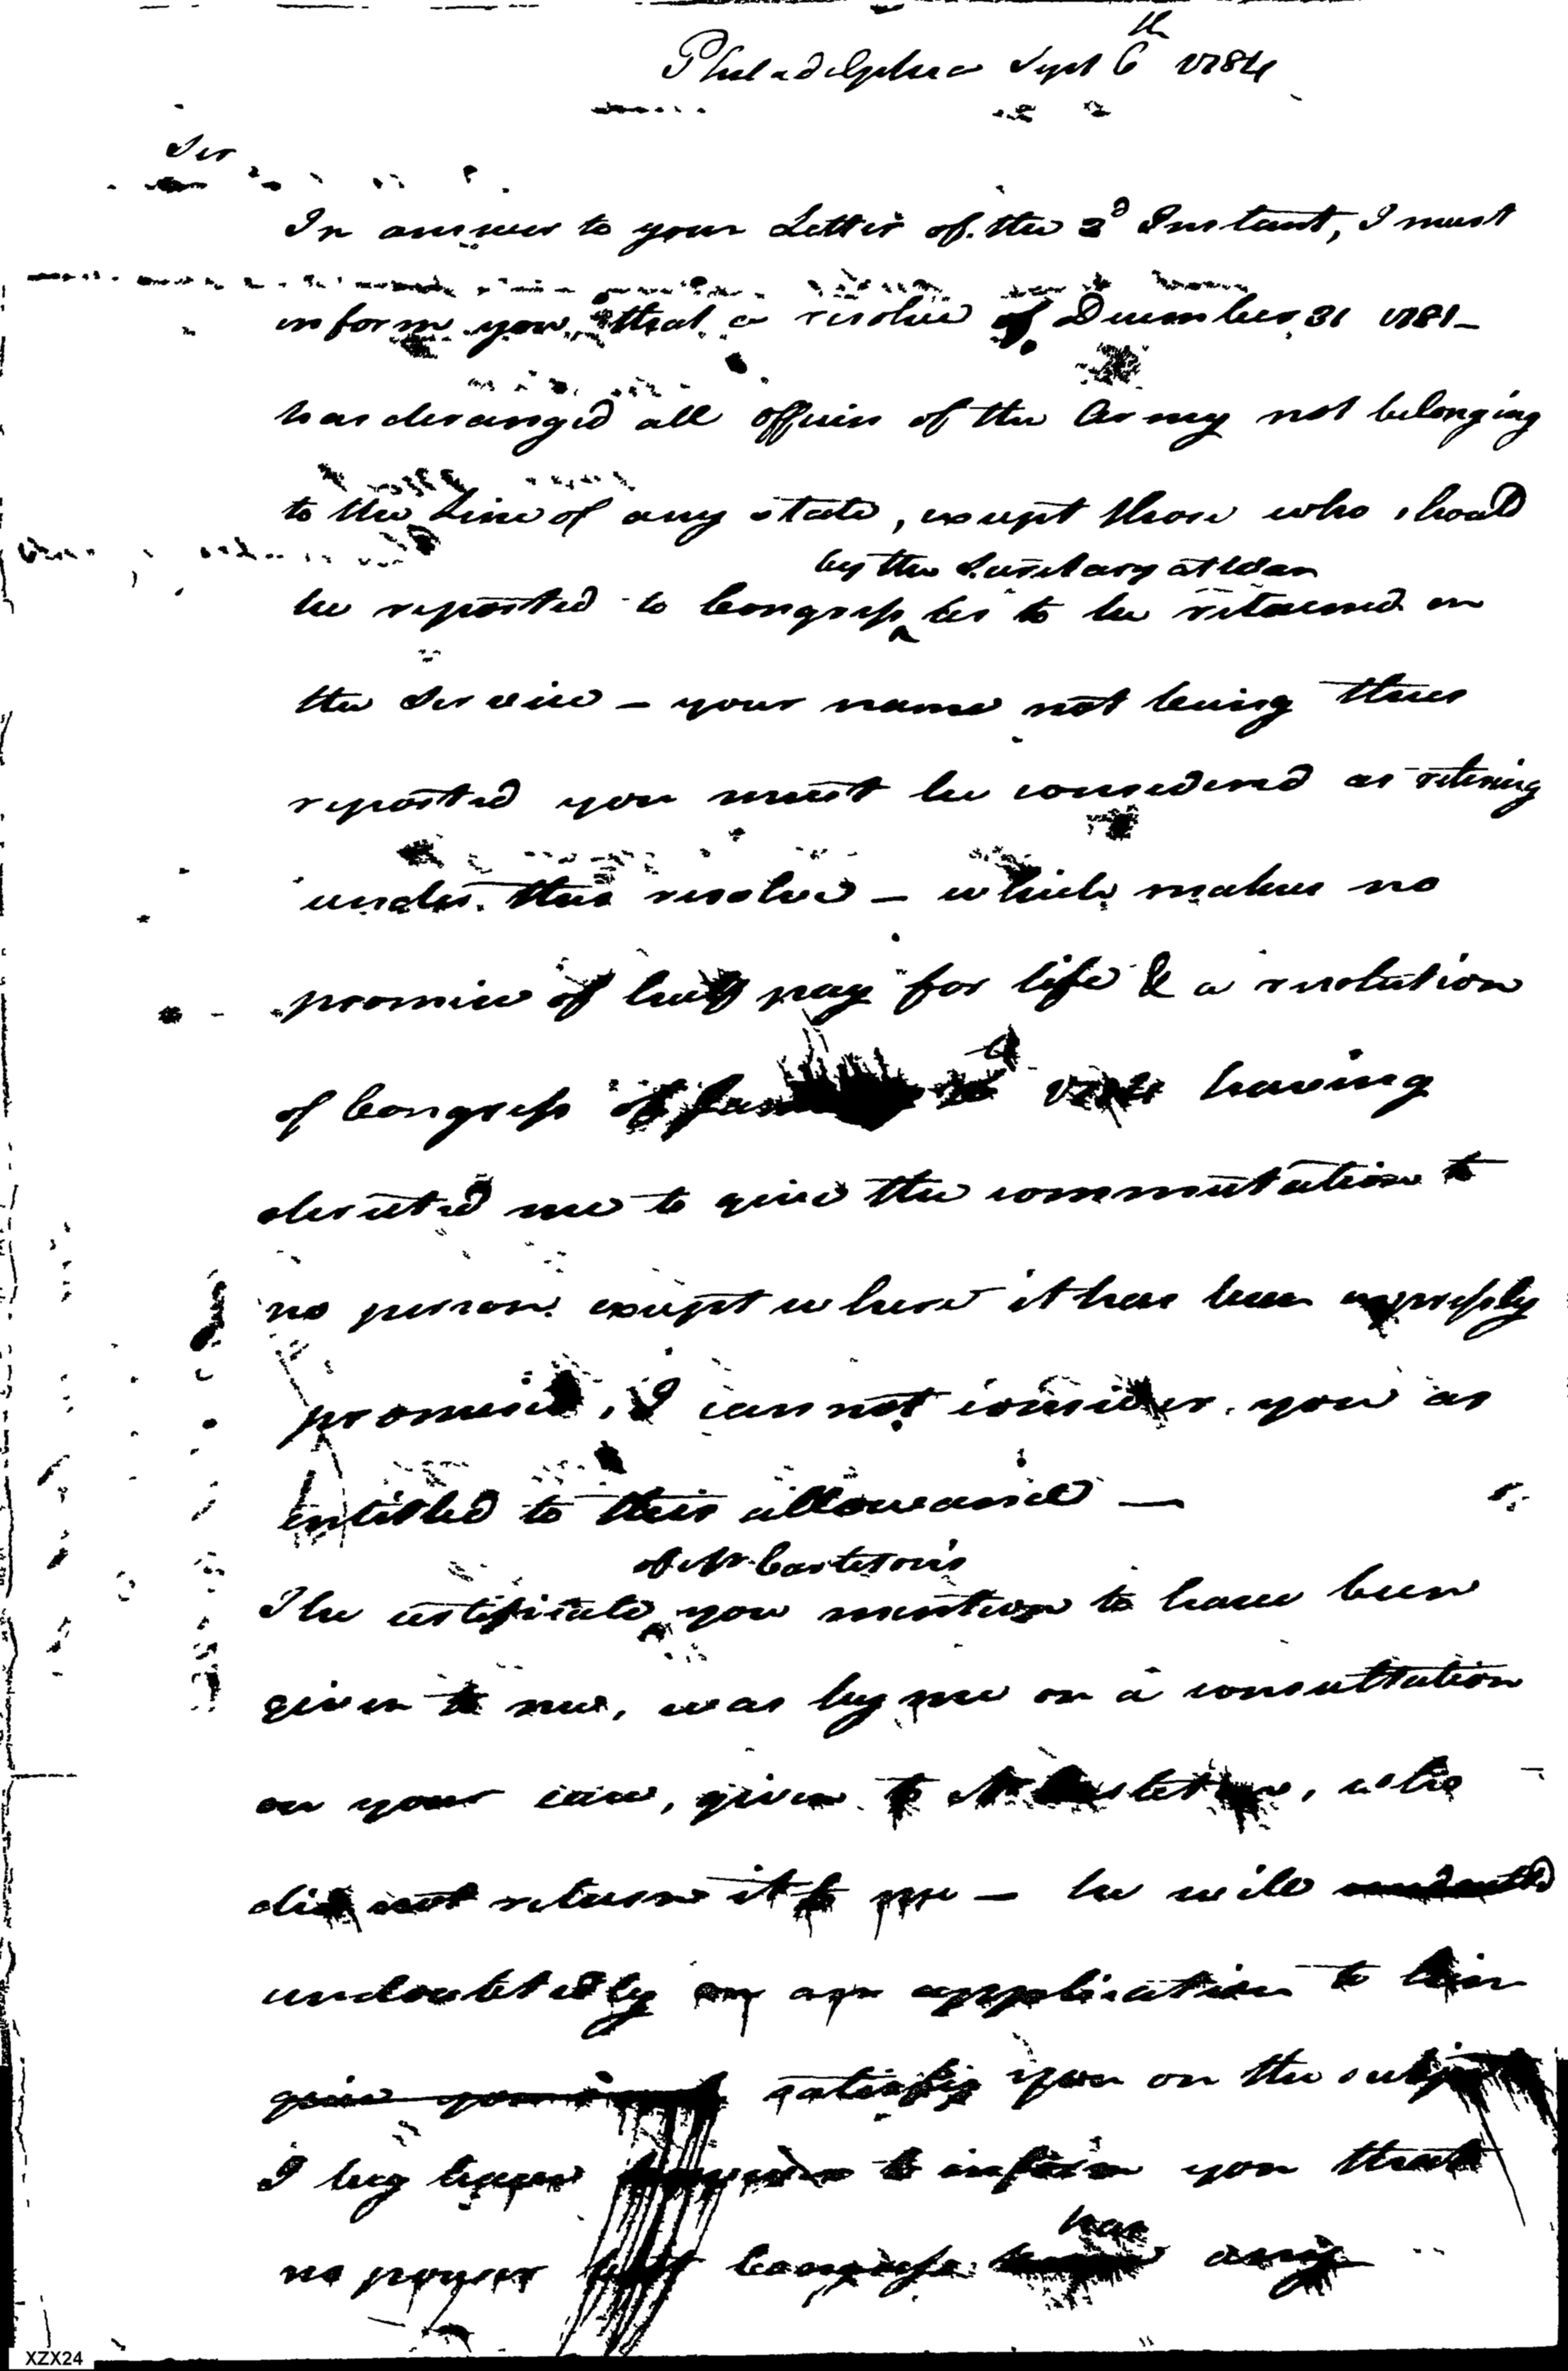 Philadelphia Sept 6th 1784
Sir
In answer to your Letter of the 3d Instant, I must
inform you, that a resolve of December 31 1781 -
has deranged all officers of the Army not belonging
to the Line of any state, except those who should
by the Secretary at War
be reported to Congress as to be retained in
the Service - your name not being thus
reported you must be considered as retiring
under this resolve - which makes no
promise of half pay for life & a resolution
of Congress of having
directed me to give the commutation to
no person except where it has been expressly
promised, I cannot consider you as
entitled to this allowance -
of Mr Carleton's
The certificate you mention to have been
given to me, was by me on a consultation
on your case, given to Mr Carleton, who
did not return it to me - he will
undoubtedly on an application to him
give you satisfy you on the subject
I beg leave however to inform you that
no power but Congress has any
XZX24